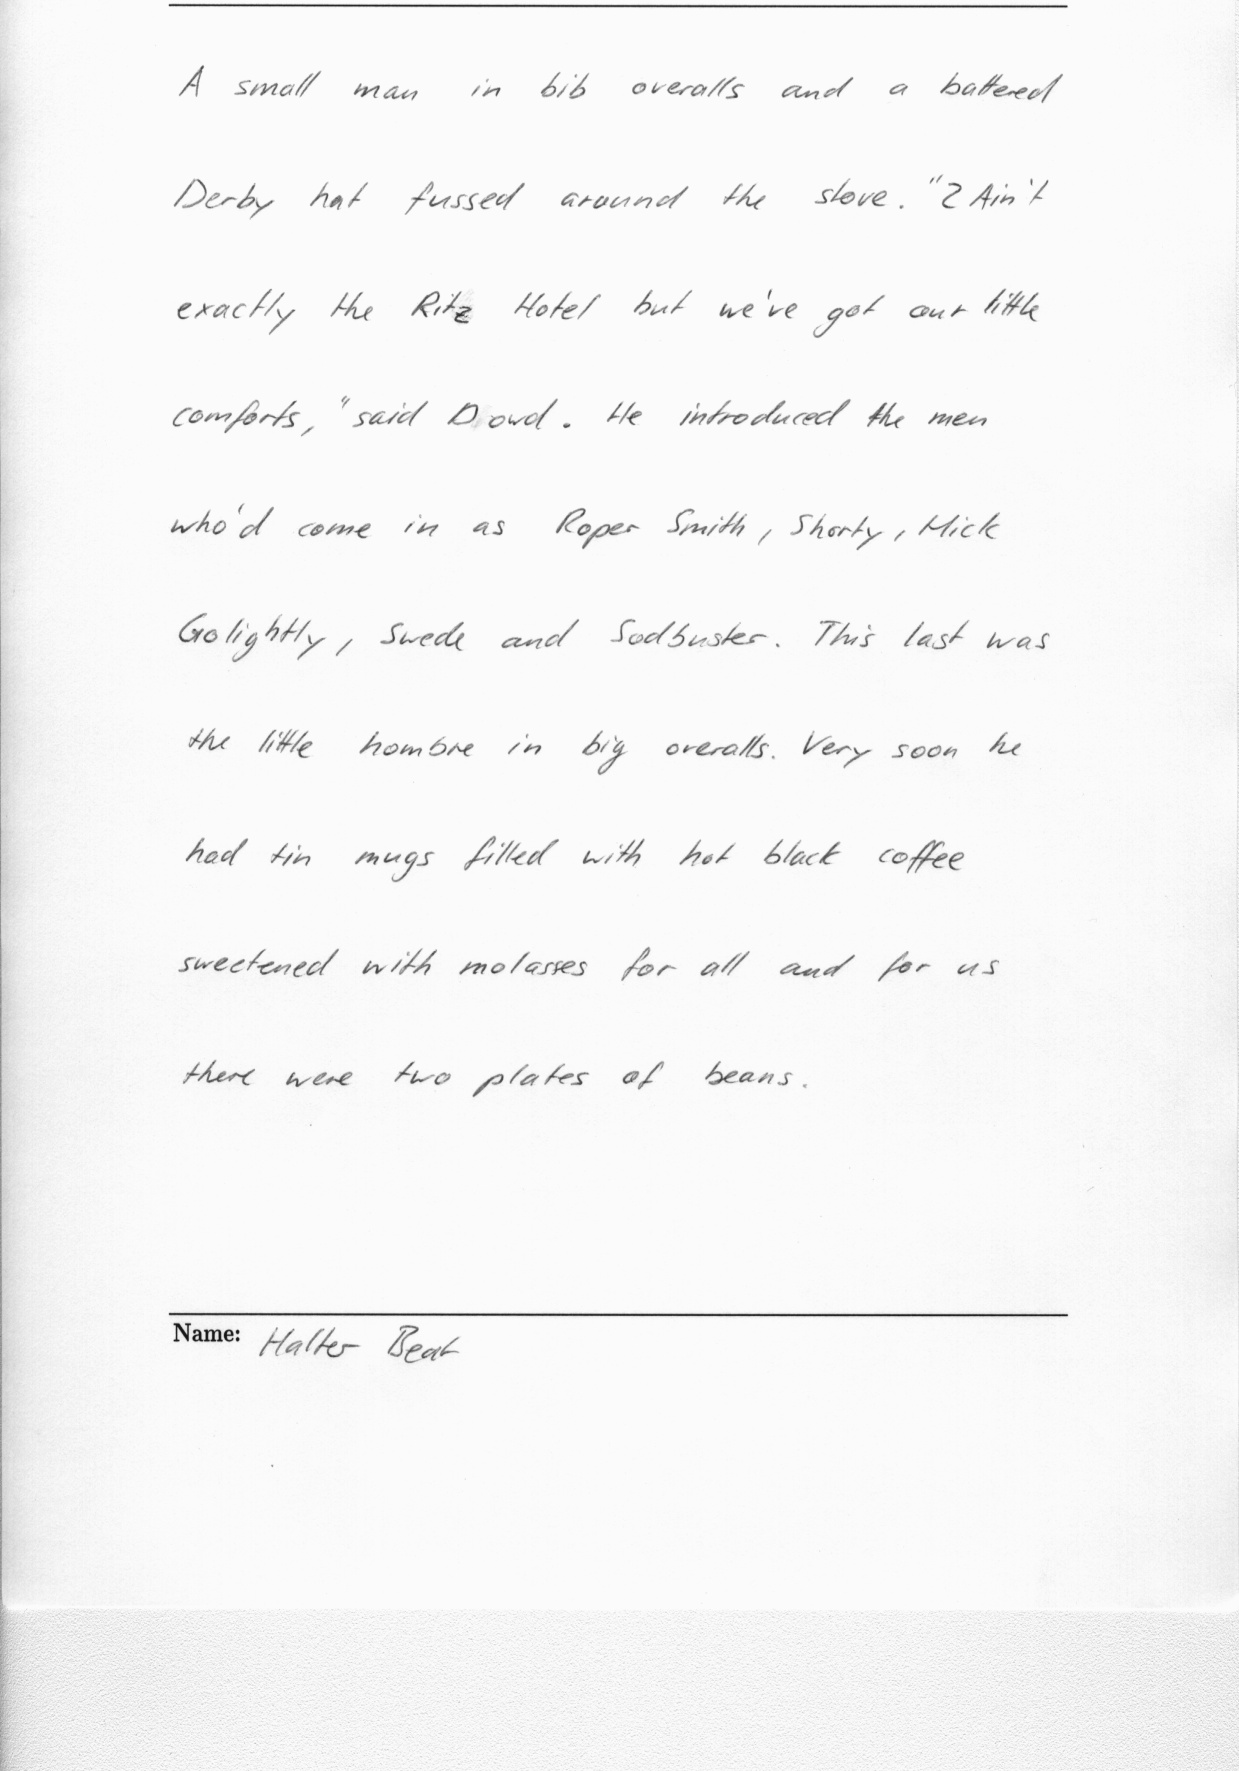 A small man in bib overalls and a battered
Derby hat fussed around the stove. "2 Ain't
exactly the Ritz Hotel but we've got our little
comforts," said Dowd. He introduced the men
who'd come in as Roper Smith, Shorty, Mick
Golightly, Swede and Sodbuster. This last was
the little hombre in big overalls. Very soon he
had tin mugs filled with hot black coffee
sweetened with molasses for all and for us
there were two plates of beans.
Name: Halter Beat